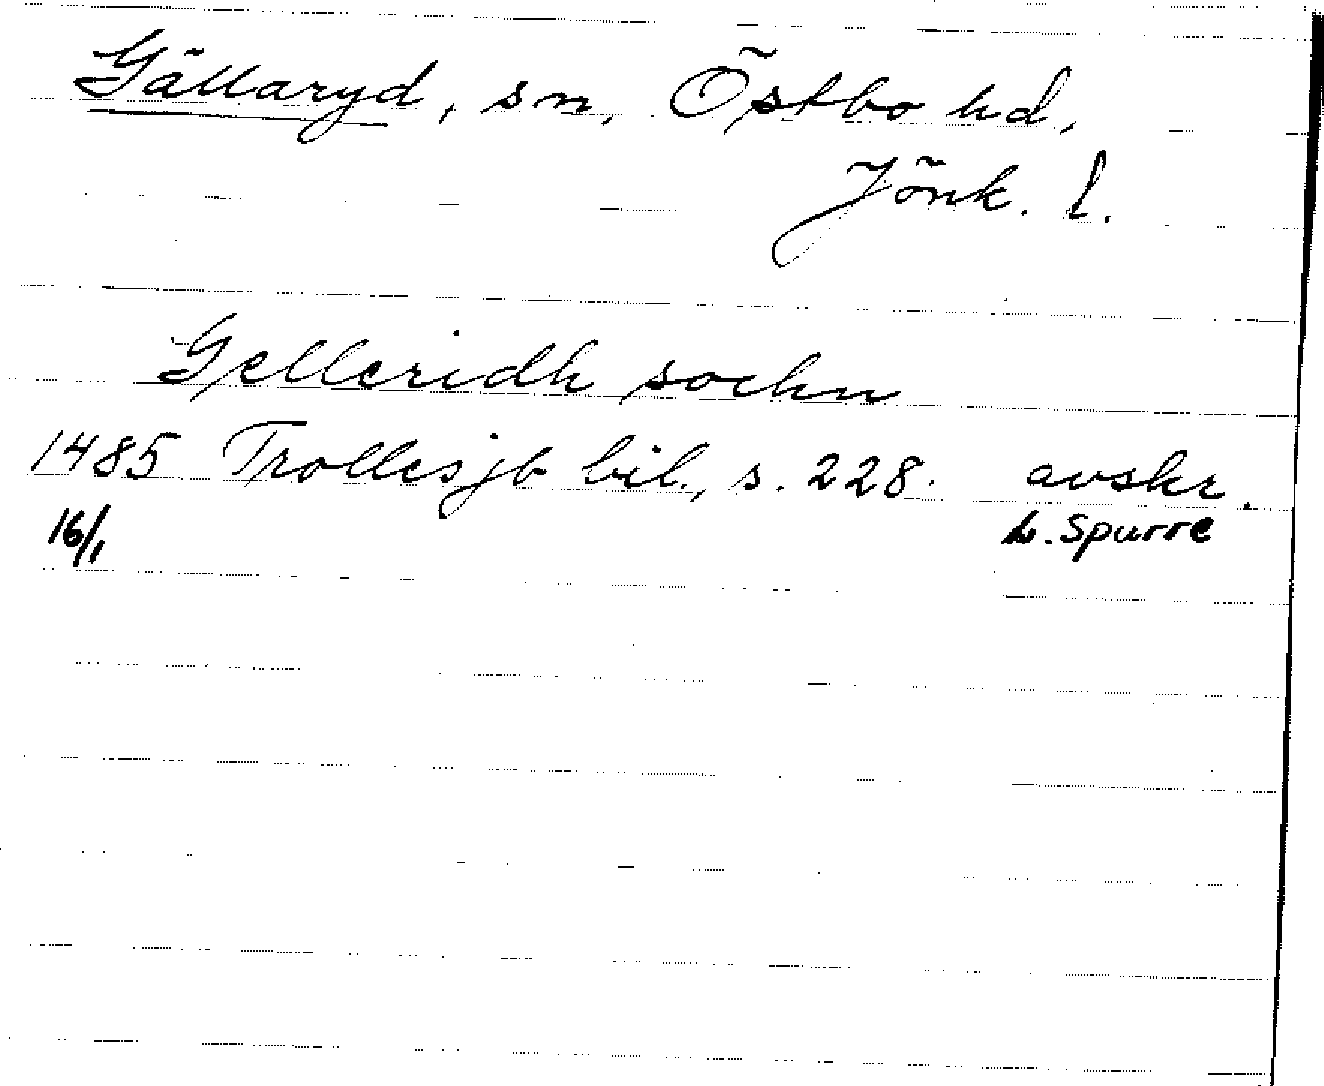 Gällaryd, sn, Östbo hd,
Jönk. l.
Gelleridh sochn
1485 Trollesjb bil., s. 228. avskr.
16/1 L. Spurre